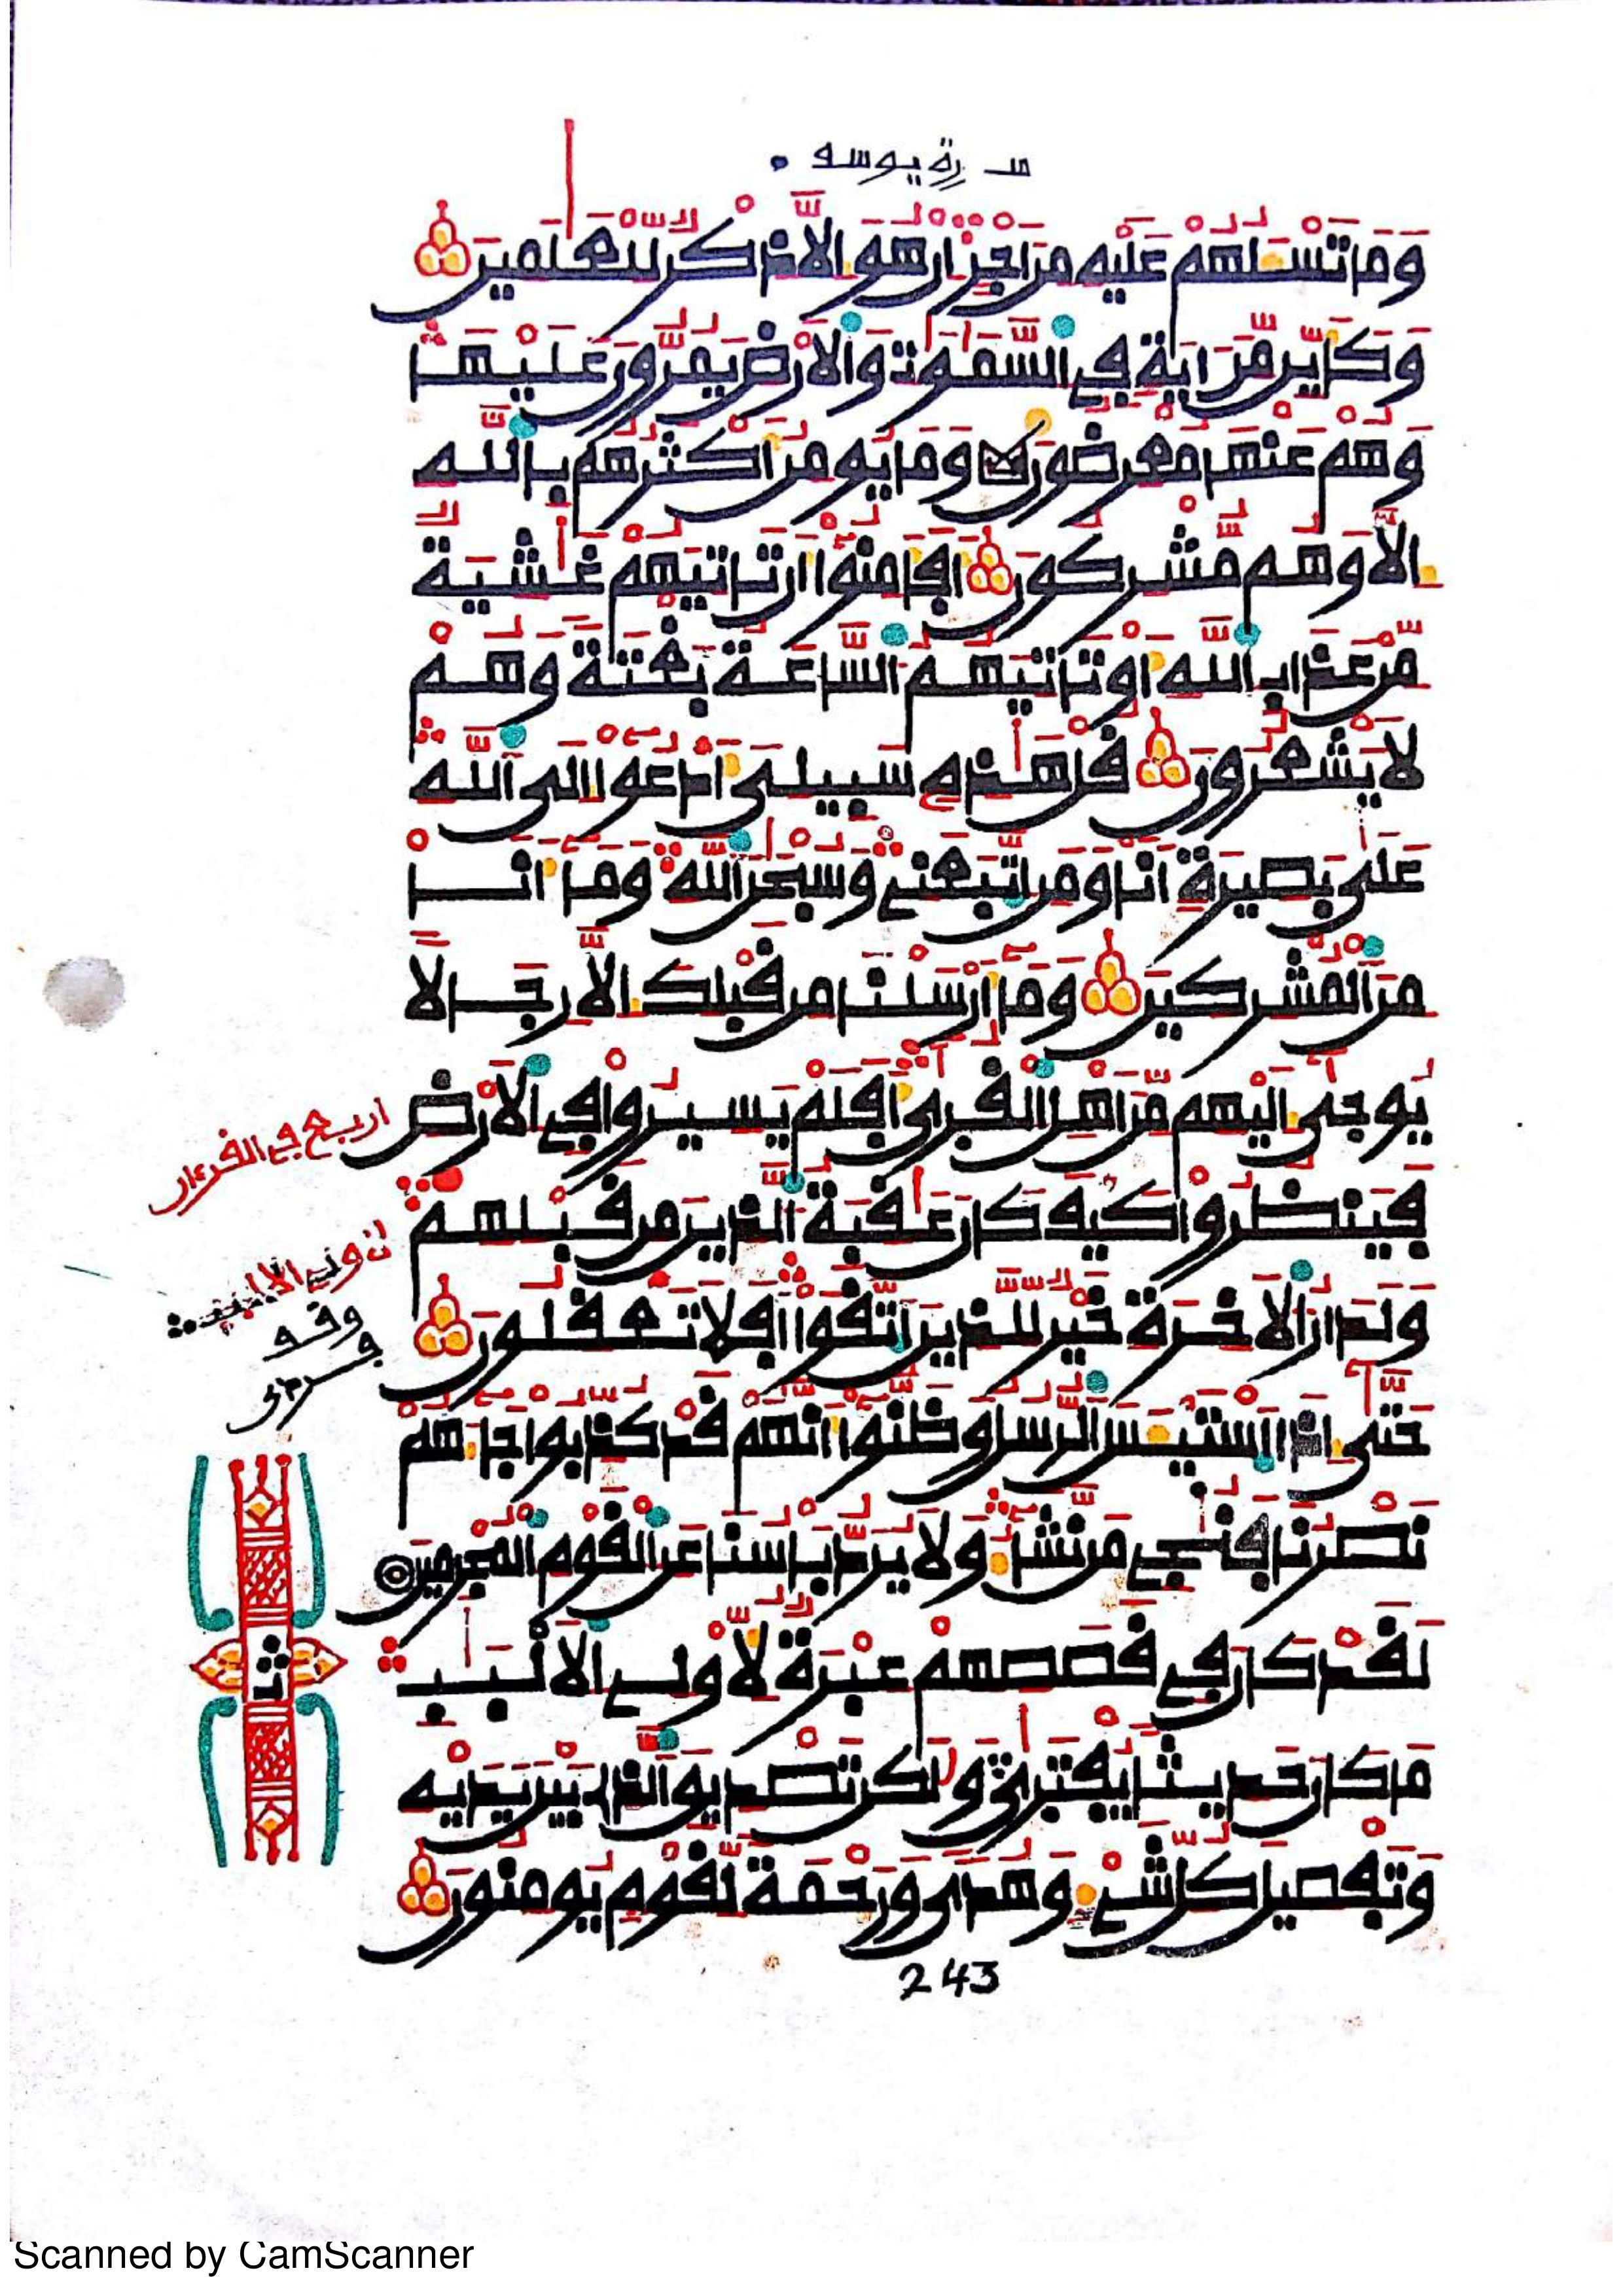 سورة يوسف
وَمَا تَسْـَٔلُهُمْ عَلَيْهِ مِنَ اَجْرٍ اِنْ هُوَ إِلَّا ذِكْرٌ لِّلْعَٰلَمِينَ
وَكَأَيِّن مِّنَ اٰيَةٍ فِي اِ۬لسَّمَٰوَٰتِ وَالَارْضِ يَمُرُّونَ عَلَيْهَا
وَهُمْ عَنْهَا مُعْرِضُونَ وَمَا يُومِنُ أَكْثَرُهُم بِاللَّهِ
إِلَّا وَهُم مُّشْرِكُونَ أَفَأَمِنُوٓا أَن تَاتِيَهُمْ غَٰشِيَةٌ
مِّنْ عَذَابِ اِ۬للَّهِ أَوْ تَاتِيَهُمُ السَّاعَةُ بَغْتَةً وَهُمْ
لَا يَشْعُرُونَ قُلْ هَٰذِهِ سَبِيلِيَ أَدْعُوٓا إِلَى اَ۬للَّهِ
عَلَىٰ بَصِيرَةٍ اَنَا وَمَنِ اِ۪تَّبَعَنِي وَسُبْحَٰنَ اَ۬للَّهِ وَمَآ أَنَا
مِنَ اَ۬لْمُشْرِكِينَ وَمَآ أَرْسَلْنَا مِن قَبْلِكَ إِلَّا رِجَالًا
يُوحَىٰٓ إِلَيْهِم مِّنَ اَهْلِ اِ۬لْقُرَىٰٓ أَفَلَمْ يَسِيرُوا فِي اِ۬لَارْضِ
اربع في القرءان
فَيَنظُرُوا كَيْفَ كَانَ عَٰقِبَةُ الَّذِينَ مِن قَبْلِهِمْ
وَلَدَارُ الَاخِرَةِ خَيْرٌ لِّلَّذِينَ اَ۪تَّقَوَا اَفَلَا تَعْقِلُونَ
حَتَّىٰٓ إِذَا اَ۪سْتَيْـَٔسَ اَ۬لرُّسُلُ وَظَنُّوٓا أَنَّهُمْ قَدْ كُذِّبُوا جَآءَهُمْ
نَصْرُنَا فَنُنجِي مَن نَّشَآءُ وَلَا يُرَدُّ بَاسُنَا عَنِ اِ۬لْقَوْمِ اِ۬لْمُجْرِمِينَ
لَقَدْ كَانَ فِي قَصَصِهِمْ عِبْرَةٌ لِّأُوْلِي اِ۬لَالْبَٰبِ
مَا كَانَ حَدِيثًا يُفْتَرَىٰ وَلَٰكِن تَصْدِيقَ اَ۬لَّذِي بَيْنَ يَدَيْهِ
وَتَفْصِيلَ كُلِّ شَيْءٍ وَهُدًى وَرَحْمَةً لِّقَوْمٍ يُومِنُونَ
243
Scanned by CamScanner